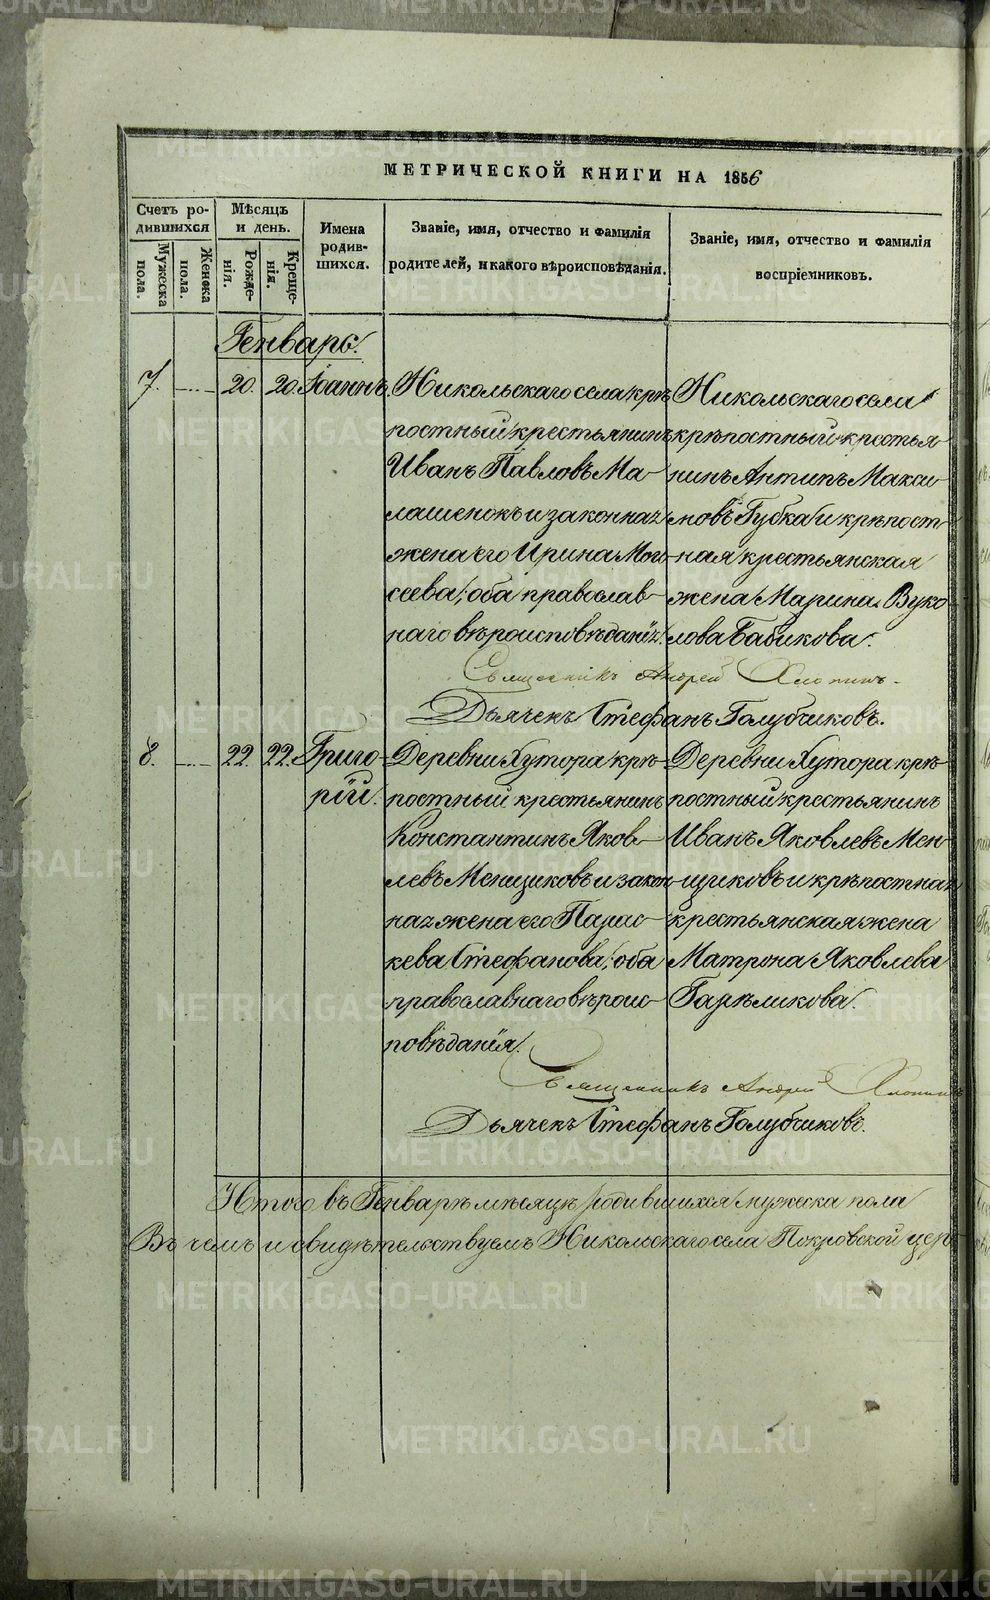 МЕТРИЧЕСКОЙ КНИГИ НА 1856
Счетъ ро-
дившихся
Мужеска
пола.
Женска
пола.
Мѣсяцъ
и день.
Рожде-
нія.
Креще-
нія.
Имена
родив-
шихся.
Званіе, имя, отчество и фамилія
родителей, и какого вѣроисповѣданія.
Званіе, имя, отчество и фамилія
воспріемниковъ.
Генварь.
7. — 20. 20. Іоаннъ.
Никольскаго села крѣ-
постный крестьянинъ
Иванъ Павловъ Ма-
лашенокъ и законная
жена его Ирина Мои-
сеева, оба православ-
наго вѣроисповѣданія.
Никольскаго села
крѣпостный крестья-
нинъ Антипъ Макси-
мовъ Губка и крѣпост-
ная крестьянская
жена Марина Вуко-
лова Бабикова.
Священникъ Андрей Хлопинъ.
Дьячекъ Стефанъ Голубчиковъ.
8. — 22. 22. Григо-
рій.
Деревни Хутора крѣ-
постный крестьянинъ
Константинъ Яков-
левъ Меншиковъ и закон-
ная жена его Парас-
кева Стефанова, оба
православнаго вѣроис-
повѣданія.
Деревни Хутора крѣ-
постный крестьянинъ
Иванъ Яковлевъ Мен-
щиковъ и крѣпостная
крестьянская жена
Матрона Яковлева
Гарѣликова.
Священникъ Андрей Хлопинъ
Дьячекъ Стефанъ Голубчиковъ.
Итого въ Генварѣ мѣсяцѣ родившихся мужеска пола
Въ чемъ и свидѣтельствуемъ Никольскаго села Покровской цер-
METRIKI.GASO-URAL.RU